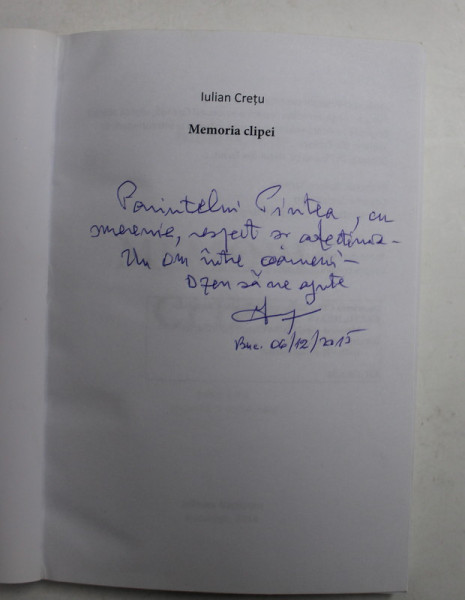 Iulian Crețu
Memoria clipei
Părintelui Pintea, cu
smerenie, respect și afecțiune –
Un om între oameni –
Dzeu să ne ajute
Buc. 06/12/2015